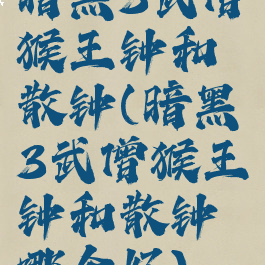 暗黑3武僧
猴王钟和
散钟(暗黑
3武僧猴王
钟和散钟
哪个好)